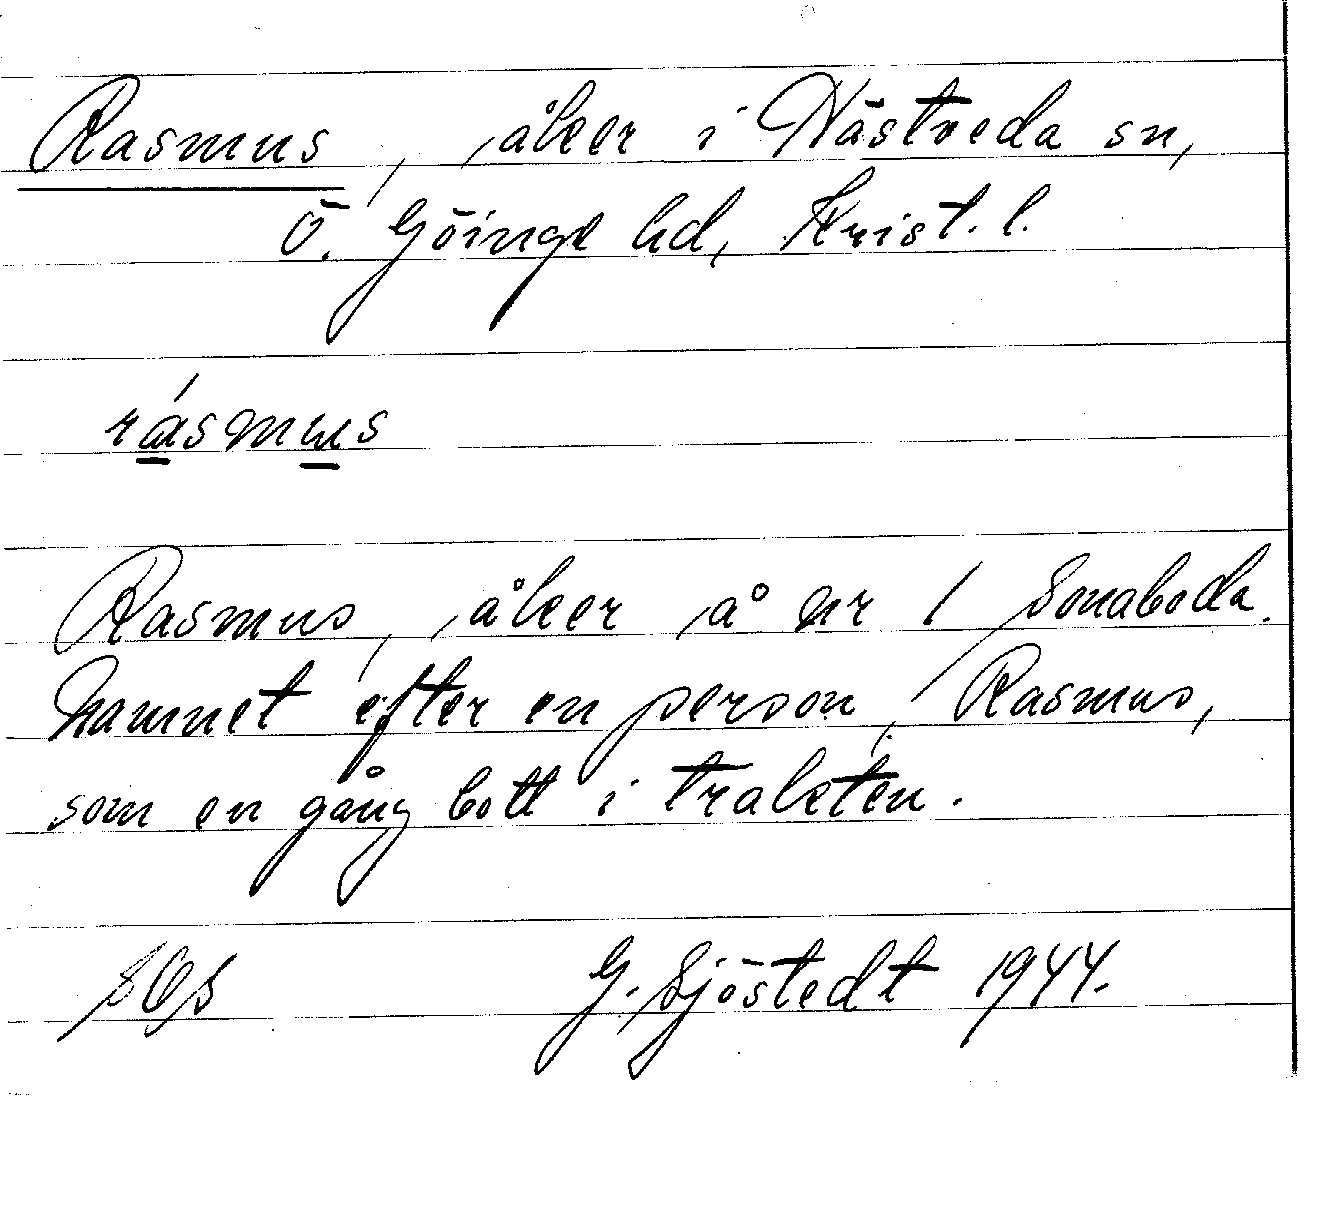 Rasmus, åker i Västveda sn,
Ö. Göinge hd, Krist. l.
rásmus
Rasmus, åker å nr 1 Sonaboda.
Namnet efter en person, Rasmus,
som en gång bott i trakten.
G. Sjöstedt 1944.